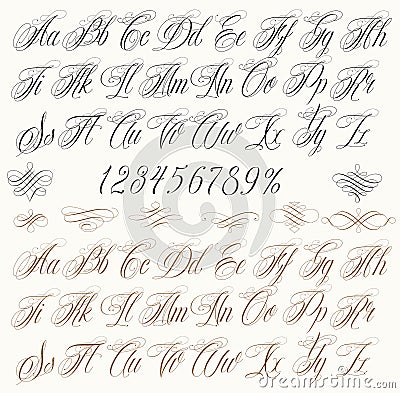 Aa Bb Cc Dd Ee Ff Gg Hh
Ii Kk Ll Mm Nn Oo Pp Rr
Ss Tt Uu Vv Ww Xx Yy Zz
123456789%
Aa Bb Cc Dd Ee Ff Gg Hh
Ii Kk Ll Mm Nn Oo Pp Rr
Ss Tt Uu Vv Ww Xx Yy Zz
dreamstime.com